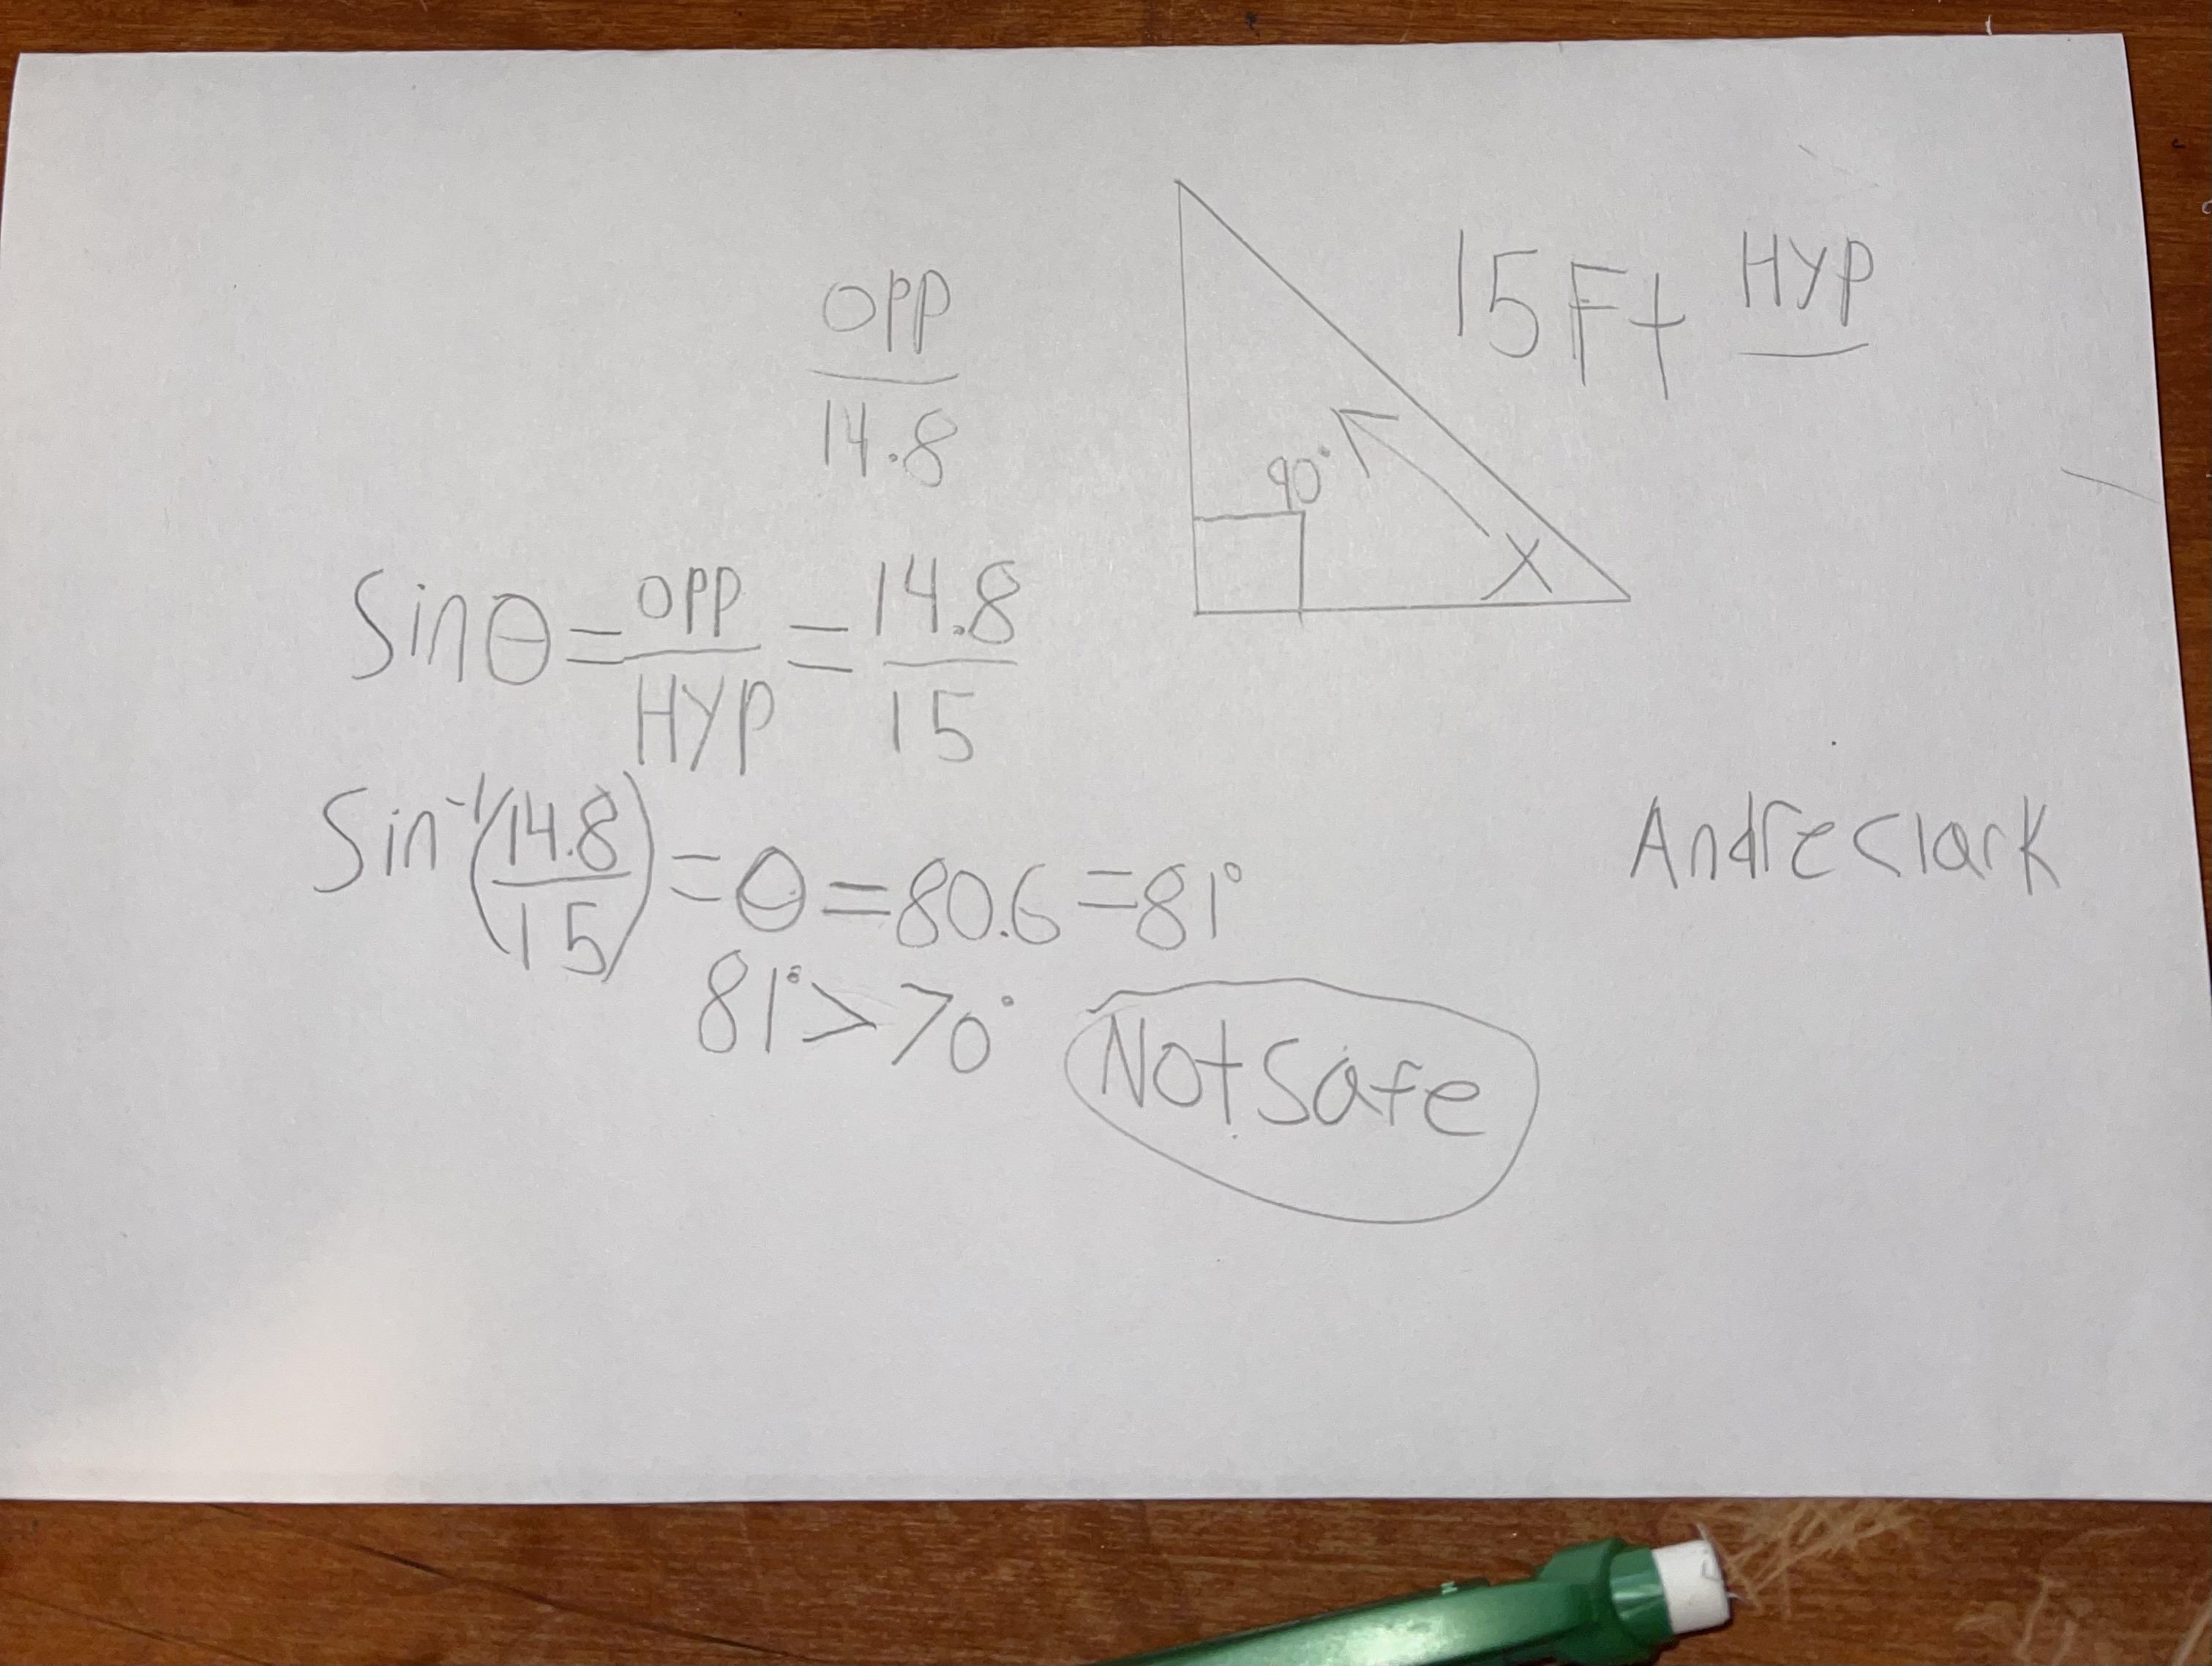 OPP
14.8
15Ft HYP
90°
X
Sinθ = OPP/HYP = 14.8/15
Sin⁻¹(14.8/15) = θ = 80.6 = 81°
81° > 70°
Not Safe
Andre Clark